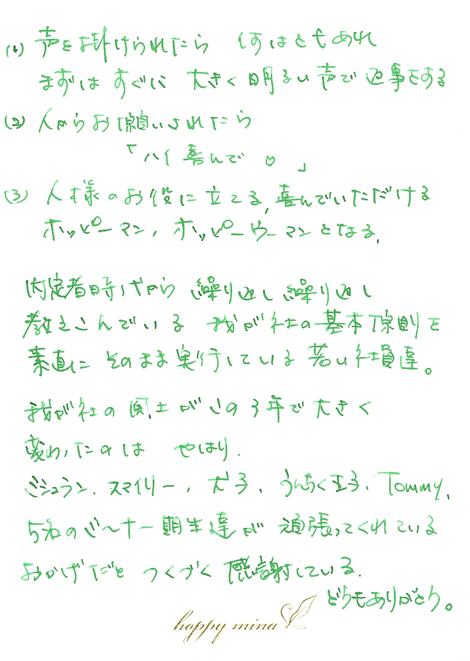 (1) 声を掛けられたら 何はともあれ
まずは すぐに 大きく明るい声で 返事をする
(2) 人からお願いされたら
「ハイ喜んで♡」
(3) 人様のお役に立てる、喜んでいただける
ホッピーマン、ホッピーウーマンとなる、
内定者時代から 繰り返し 繰り返し
教えこんでいる 我が社の基本原則を
素直に そのまま実行している 若い社員達。
我が社の風土がこの3年で大きく
変わったのは やはり、
ミシュラン、スマイリー、犬子、うんちく王子、Tommy、
5名の 一期生達が 頑張ってくれている
おかげだと つくづく 感謝している、
どうもありがとう。
happy mina